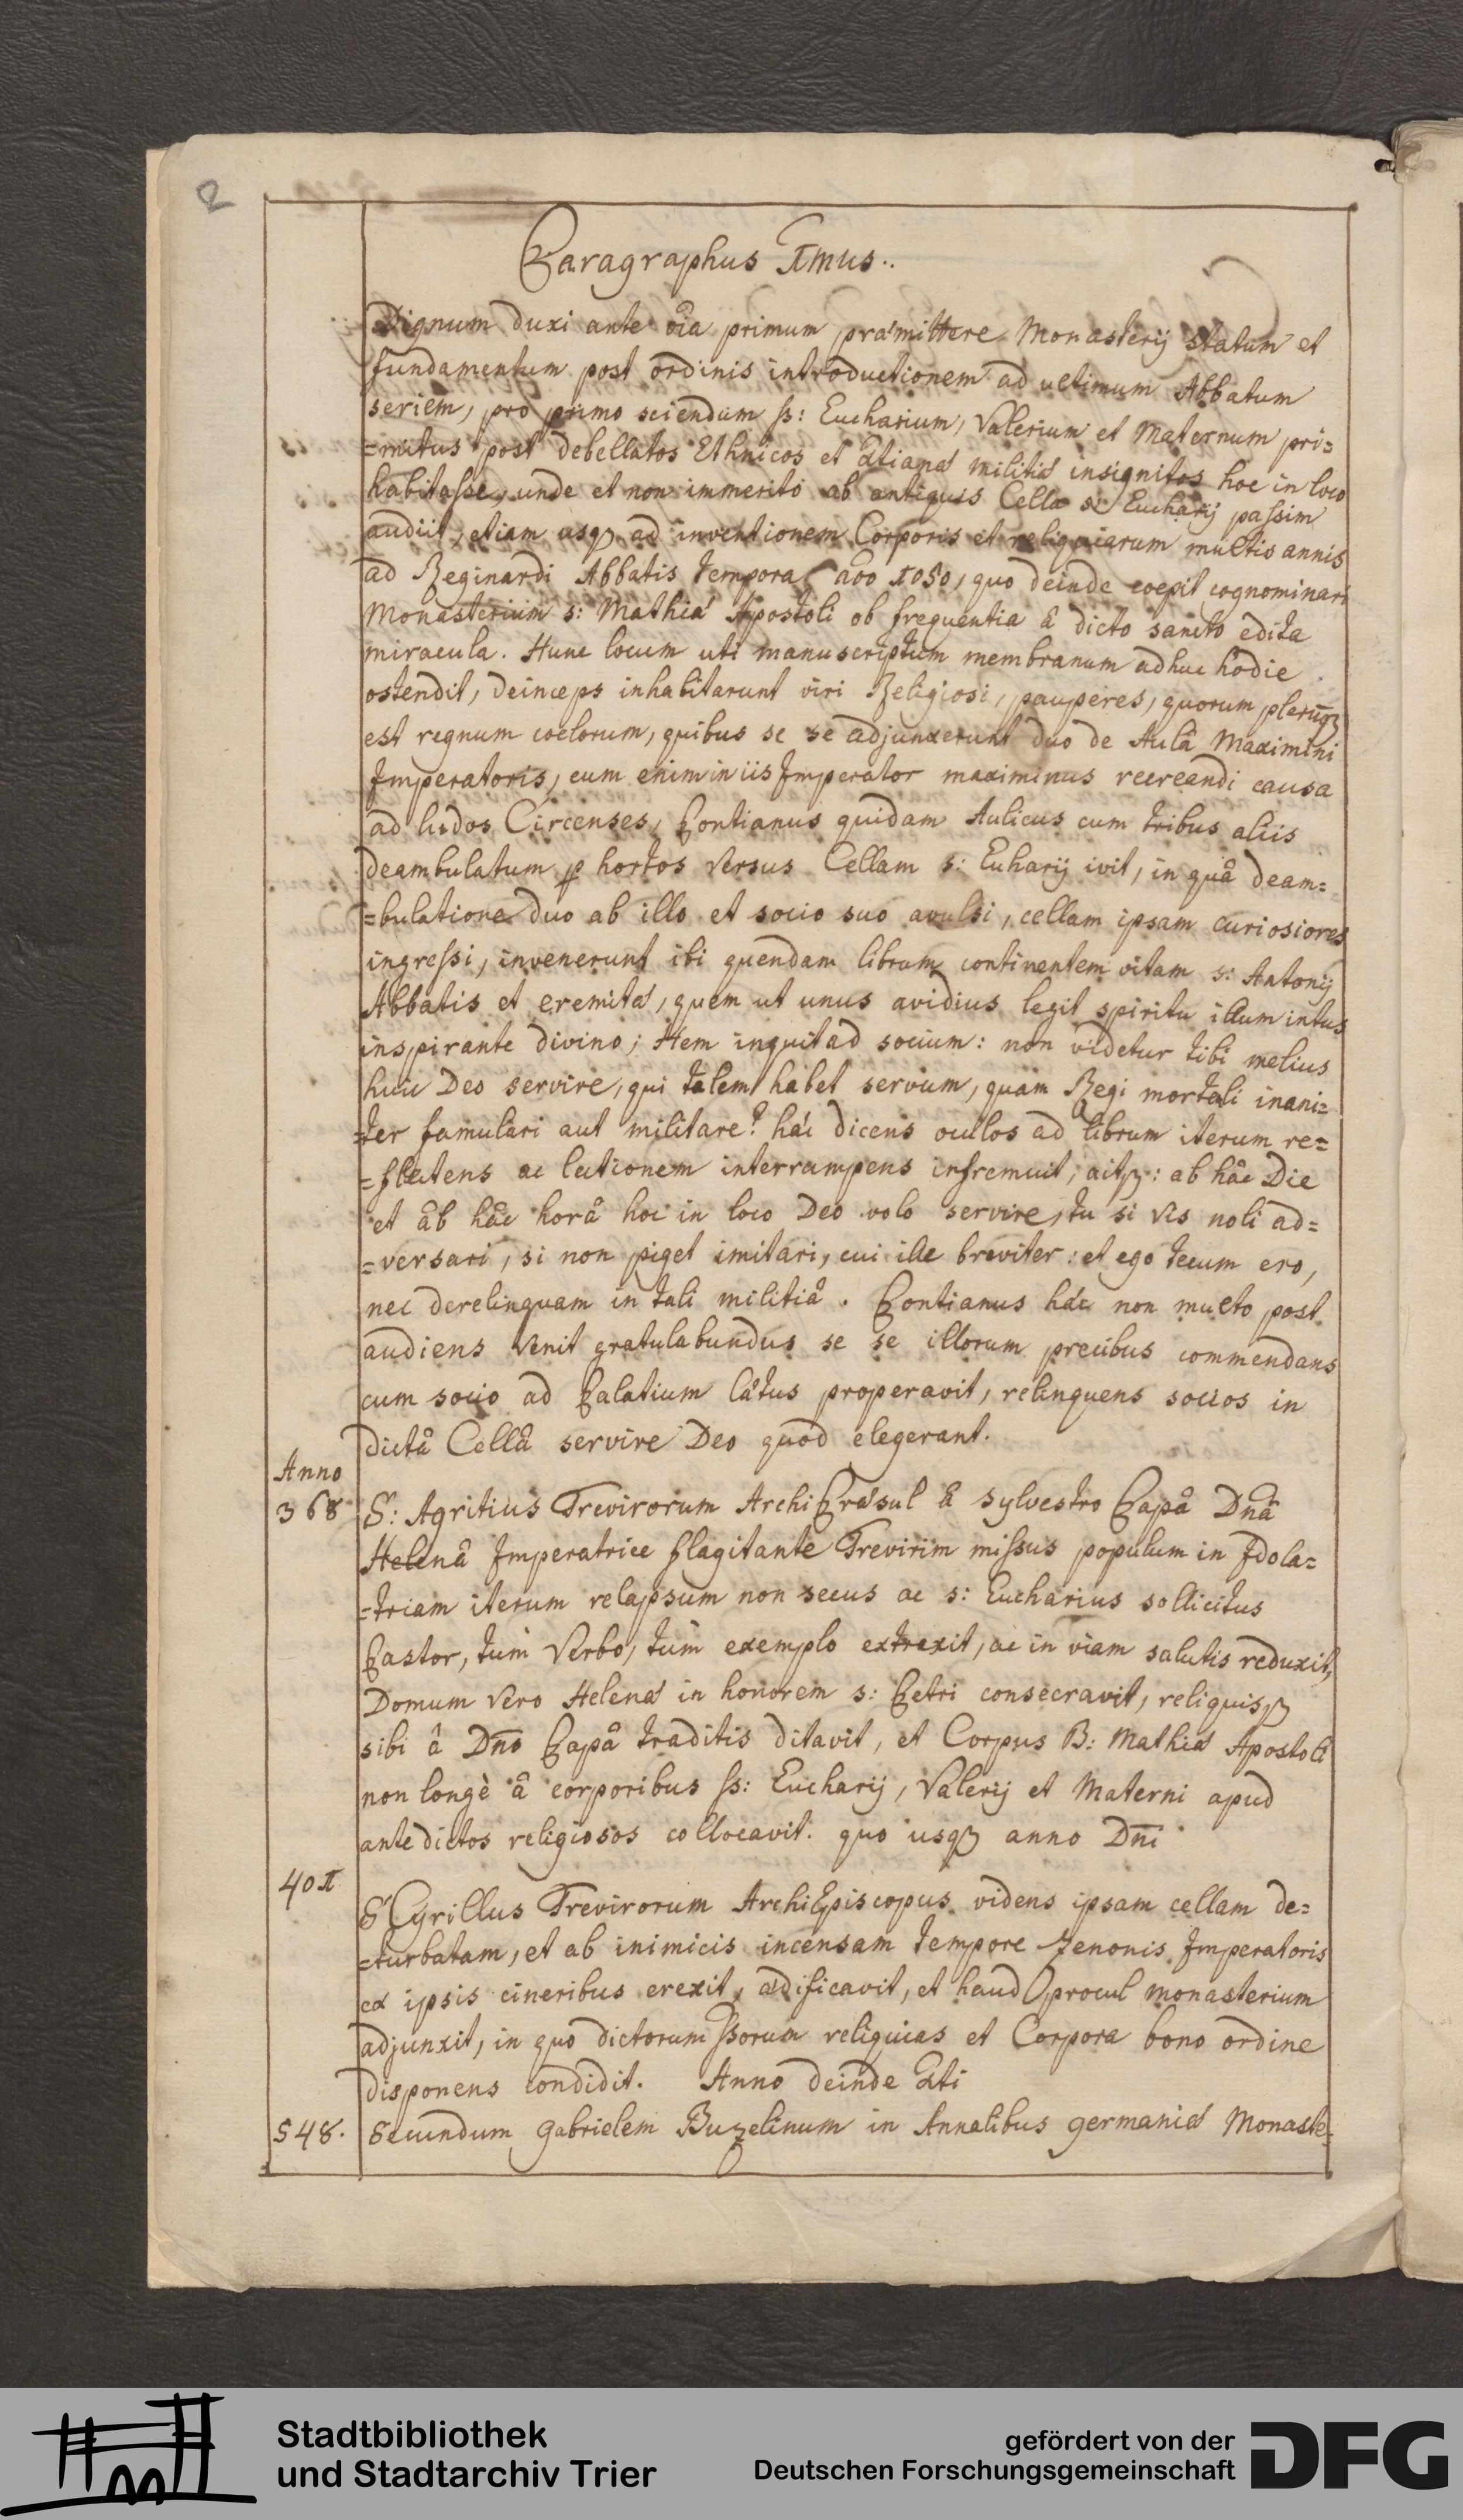 2
Paragraphus 1mus..
Dignum duxi ante oĩa primum præmittere Monasterij statum et
fundamentum post ordinis introductionem ad ultimum Abbatum
seriem, pro primo sciendum ss: Eucharium, Valerium et Maternum pri=
=mitus post debellatos Ethnicos et Xtianæ militiæ insignitos hoc in loco
habitasse, unde et non immeritò ab antiquis Cella s: Eucharij passim
audiit, etiam usqꝫ ad inventionem Corporis et reliquiarum multis annis
ad Reginardi Abbatis tempora año 1050, quo deinde coepit cognominari
Monasterium s: Mathiæ Apostoli ob frequentia â dicto sancto edita
miracula. Hunc locum uti manuscriptum membranum adhuc hodie
ostendit, deinceps inhabitarunt viri Religiosi, pauperes, quorum plerũqꝫ
est regnum coelorum, quibus se se adjunxerunt duo de Aulâ Maximini
Imperatoris, cum enim in iis Imperator maximinus recreandi causa
ad ludos Circenses, Pontianus quidam Aulicus cum tribus aliis
deambulatum ꝑ hortos versus Cellam s: Euharij ivit, in quâ deam=
=bulatione duo ab illo et socio suo avulsi, cellam ipsam curiosiores
ingressi, invenerunt ibi quendam librum continentem vitam s: Antonij
Abbatis et eremitæ, quem ut unus avidius legit spiritu illum intus
inspirante divino; Hem inquit ad socium: non videtur tibi melius
huic Deo servire, qui talem habet servum, quam Regi mortali inani=
=ter famulari aut militare? hæc dicens oculos ad librum iterum re=
=flectens ac lectionem interrumpens infremuit, aitqꝫ: ab hâc Die
et âb hâc horâ hoc in loco Deo volo servire, tu si vis noli ad=
=versari, si non piget imitari, cui ille breviter: et ego tecum ero,
nec derelinquam in tali militiâ. Pontianus hæc non multo post
audiens venit gratulabundus se se illorum precibus commendans
cum socio ad Palatium lætus properavit, relinquens socios in
dictâ Cellâ servire Deo quod elegerant.
Anno
368 S: Agritius Trevirorum ArchiPræsul â Sylvestro Papâ Dñâ
Helenâ Imperatrice flagitante Trevirim missus populum in Idola=
=triam iterum relapsum non secus ac s: Eucharius sollicitus
Pastor, tum Verbo, tum exemplo extraxit, ac in viam salutis reduxit,
Domum vero Helenæ in honorem s: Petri consecravit, reliquisqꝫ
sibi â Dño Papâ traditis ditavit, et Corpus B: Mathiæ Apostoli
non longè â corporibus ss: Eucharij, Valerij et Materni apud
ante dictos religiosos collocavit. quo usqꝫ anno Dñi
401
S Cyrillus Trevirorum ArchiEpiscopus videns ipsam cellam de=
=turbatam, et ab inimicis incensam tempore Zenonis Imperatoris
ex ipsis cineribus erexit, ædificavit, et haud procul monasterium
adjunxit, in quo dictorum ssorum reliquias et Corpora bono ordine
disponens condidit. Anno deinde Xti
548. Secundum Gabrielem Buzelinum in Annalibus germaniæ Monaste=
Stadtbibliothek
und Stadtarchiv Trier
gefördert von der
Deutschen Forschungsgemeinschaft
DFG